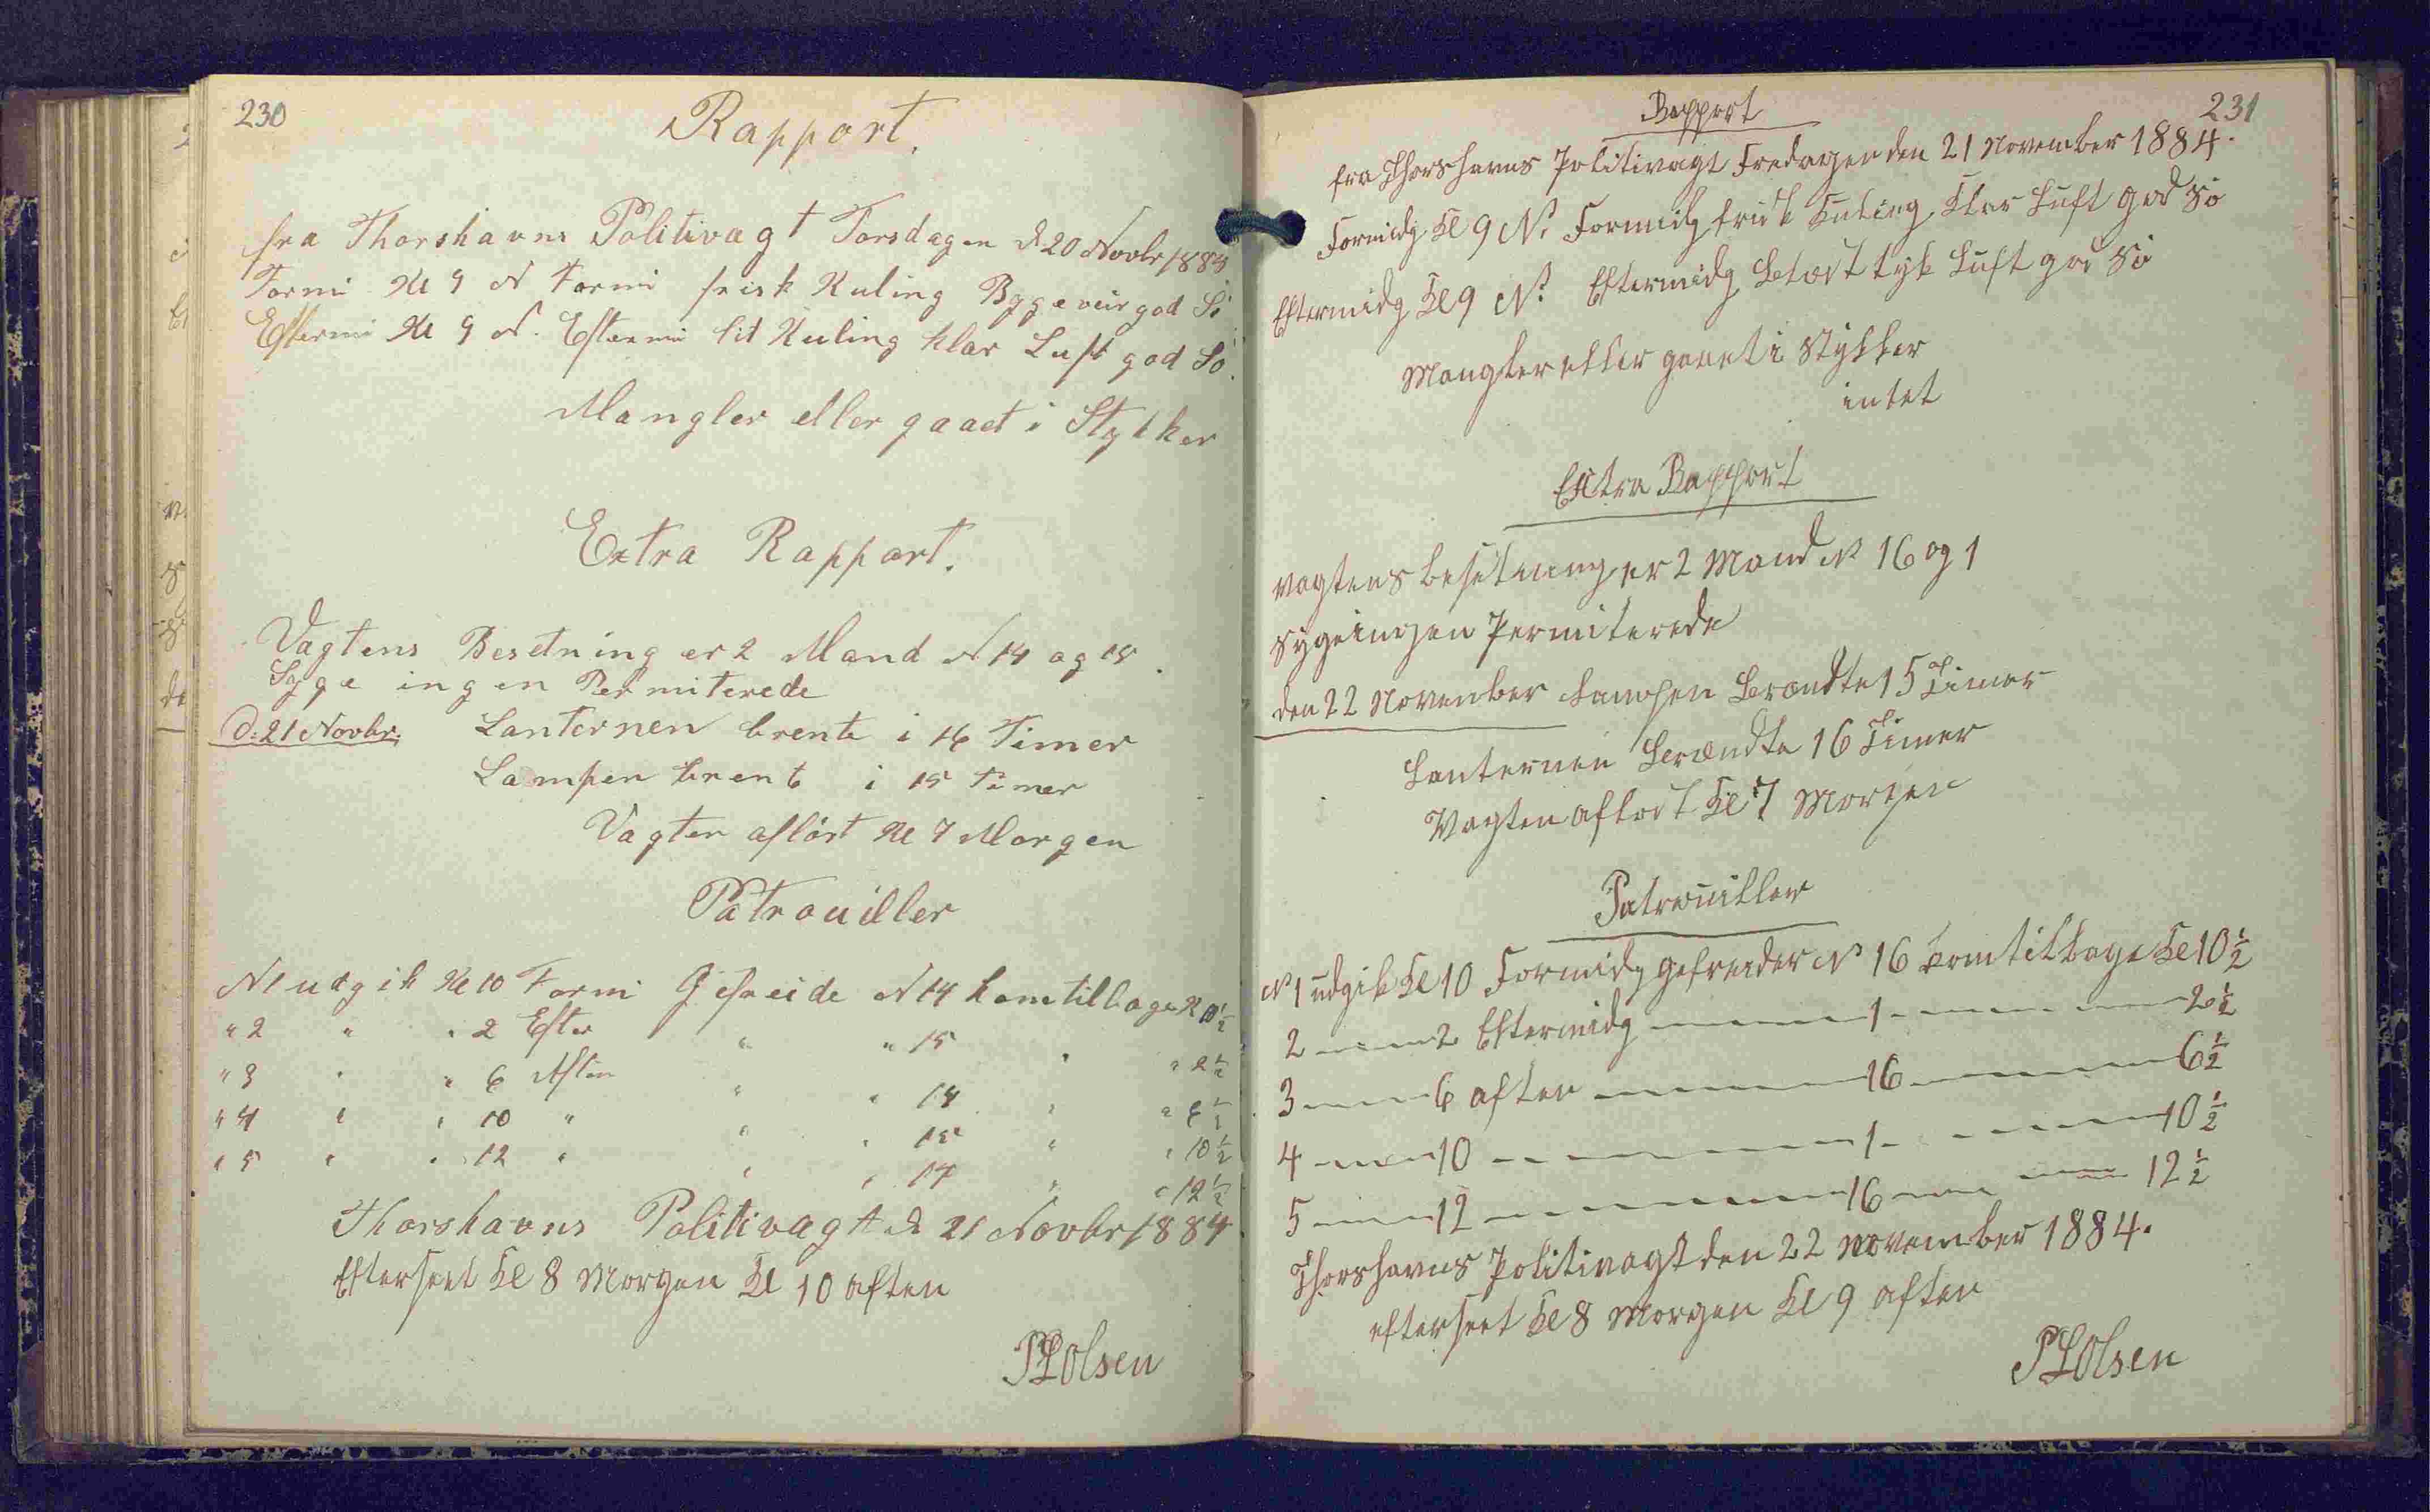 230
Rapport.
fra Thorshavns Politivagt Torsdagen d. 20 Novbr 1884
Formi Kl 9 N Formi frisk Kuling Bygeveir god Sö
Eftermi Kl 9 N. Eftermi lit Kuling klar Luft god Sö.
Mangler eller gaaet i Stykker
Extra Rapport.
Vagtens Besetning er 2 Mand N 14 og 15.
Syge ingen Permiterede
D. 21 Novbr. Lanternen brente i 16 Timer
Lampen brent i 15 Timer
Vagten aflöst Kl 7 Morgen
Patrouiller
N 1 udgik Kl 10 Formi Gefreide N 14 kom tilbage K 10½
" 2 " " 2 Efter " " 15 " " 2½
" 3 " " 6 Aften " " 14 " " 6½
" 4 " " 10 " " " 15 " " 10½
" 5 " " 12 " " " 14 " " 12½
Thorshavns Politivagt d 21 Novbr 1884
Efterseet Kl 8 Morgen Kl 10 aften
PLOlsen
231
Rapport
fra Thorshavns Politivagt Fredagen den 21 November 1884.
Formidg Kl 9 N. Formidg frisk Kuling, Klar Luft god Sö
Eftermidg Kl 9 N. Eftermidg tyk Luft god Sö
Mangler eller gaaet i Stykker
intet
Extra Rapport
Vagtens besetning er 2 Mand N 16 og 1
Syge ingen Permiterede
den 22 November Lampen Brændte 15 Timer
Lanternen Brændte 16 Timer
Vagten aflöst Kl 7 Morgen
Patrouiller
N 1 udgik Kl 10 Formidg Gefreider N 16 kom tilbage Kl 10½
2 — 2 Eftermidg — 1 — 2½
3 — 6 aften — 16 — 6½
4 — 10 — 1 — 10½
5 — 12 — 16 — 12½
Thorshavns Politivagt den 22 November 1884.
efterseet Kl 8 Morgen Kl 9 aften
PLOlsen